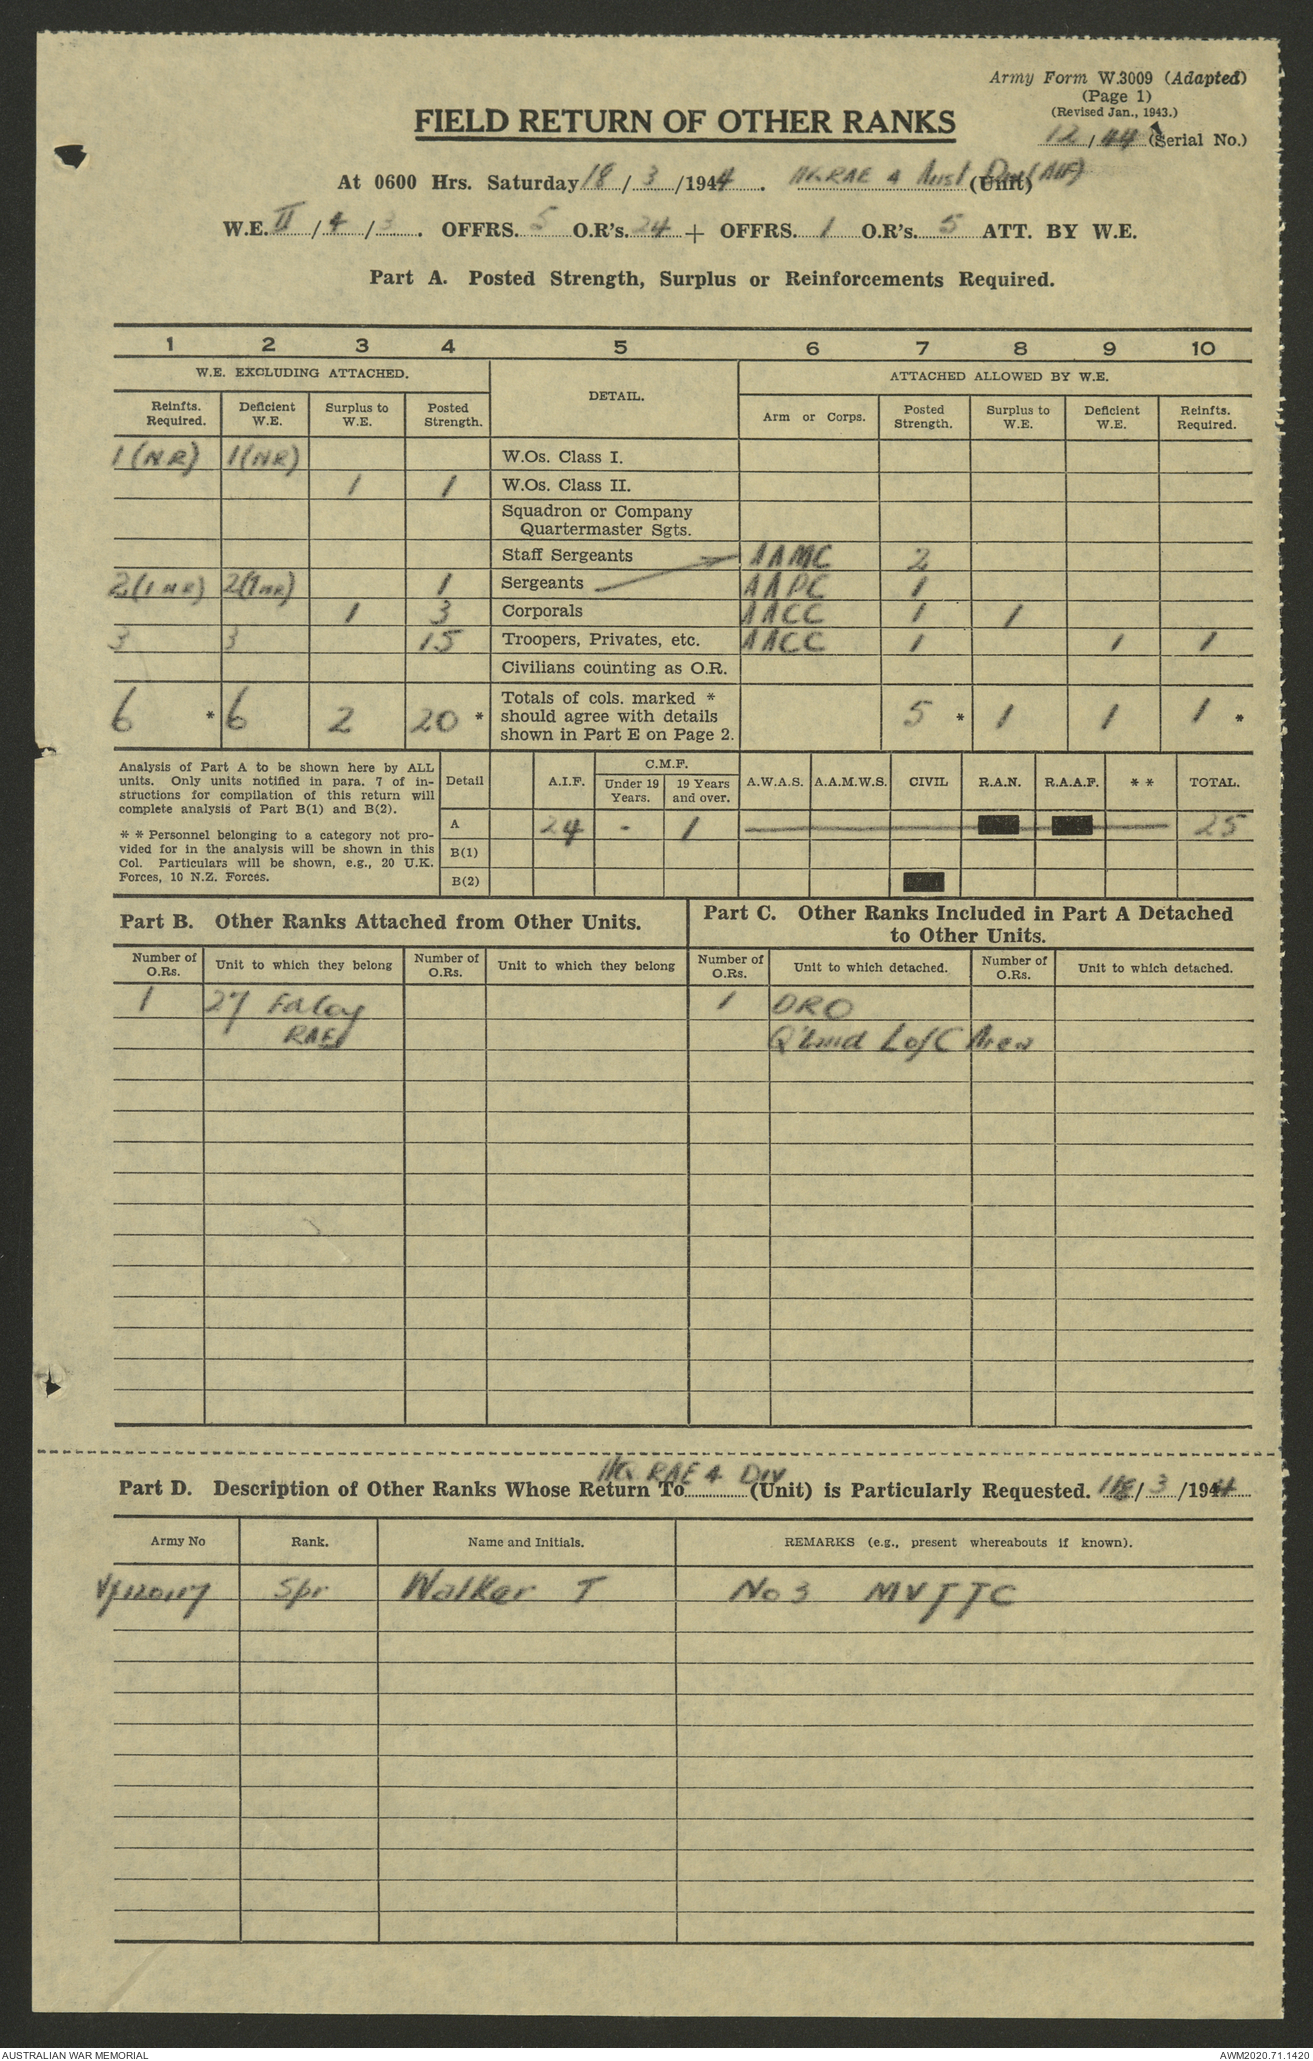 Army Form W.3009 (Adapted)
(Page 1)
(Revised Jan., 1943.)
FIELD RETURN OF OTHER RANKS
12/44 (Serial No.)
At 0600 Hrs. Saturday 18/3/1944. HQ RAE 4 Aust Div (AIF) (Unit)
W.E. II/4/3. OFFRS. 5 O.R's. 24 + OFFRS. 1 O.R's. 5 ATT. BY W.E.
Part A. Posted Strength, Surplus or Reinforcements Required.
1 2 3 4 5 6 7 8 9 10
W.E. EXCLUDING ATTACHED. DETAIL. ATTACHED ALLOWED BY W.E.
Reinfts. Required. Deficient W.E. Surplus to W.E. Posted Strength. Arm or Corps. Posted Strength. Surplus to W.E. Deficient W.E. Reinfts. Required.
1(NR) 1(NR) W.Os. Class I.
1 1 W.Os. Class II.
Squadron or Company
Quartermaster Sgts.
Staff Sergeants AAMC 2
2(1 NR) 2(1NR) 1 Sergeants AAPC 1
1 3 Corporals AACC 1 1
3 3 15 Troopers, Privates, etc. AACC 1 1 1
Civilians counting as O.R.
Totals of cols. marked *
6 * 6 2 20 * should agree with details 5 * 1 1 1 *
shown in Part E on Page 2.
Analysis of Part A to be shown here by ALL
units. Only units notified in para. 7 of in-
structions for compilation of this return will
complete analysis of Part B(1) and B(2).
* * Personnel belonging to a category not pro-
vided for in the analysis will be shown in this
Col. Particulars will be shown, e.g., 20 U.K.
Forces, 10 N.Z. Forces.
C.M.F.
Detail A.I.F. Under 19 Years. 19 Years and over. A.W.A.S. A.A.M.W.S. CIVIL R.A.N. R.A.A.F. * * TOTAL.
A 24 - 1 25
B(1)
B(2)
Part B. Other Ranks Attached from Other Units.
Part C. Other Ranks Included in Part A Detached
to Other Units.
Number of O.Rs. Unit to which they belong Number of O.Rs. Unit to which they belong Number of O.Rs. Unit to which detached. Number of O.Rs. Unit to which detached.
1 27 Fd Coy 1 DRO
RAE Q'Land L of C Area
Part D. Description of Other Ranks Whose Return To HQ RAE 4 Div (Unit) is Particularly Requested. 18/3/1944
Army No Rank. Name and Initials. REMARKS (e.g., present whereabouts if known).
Spr Walker T No 3 MVTTC
AUSTRALIAN WAR MEMORIAL
AWM2020.71.1420